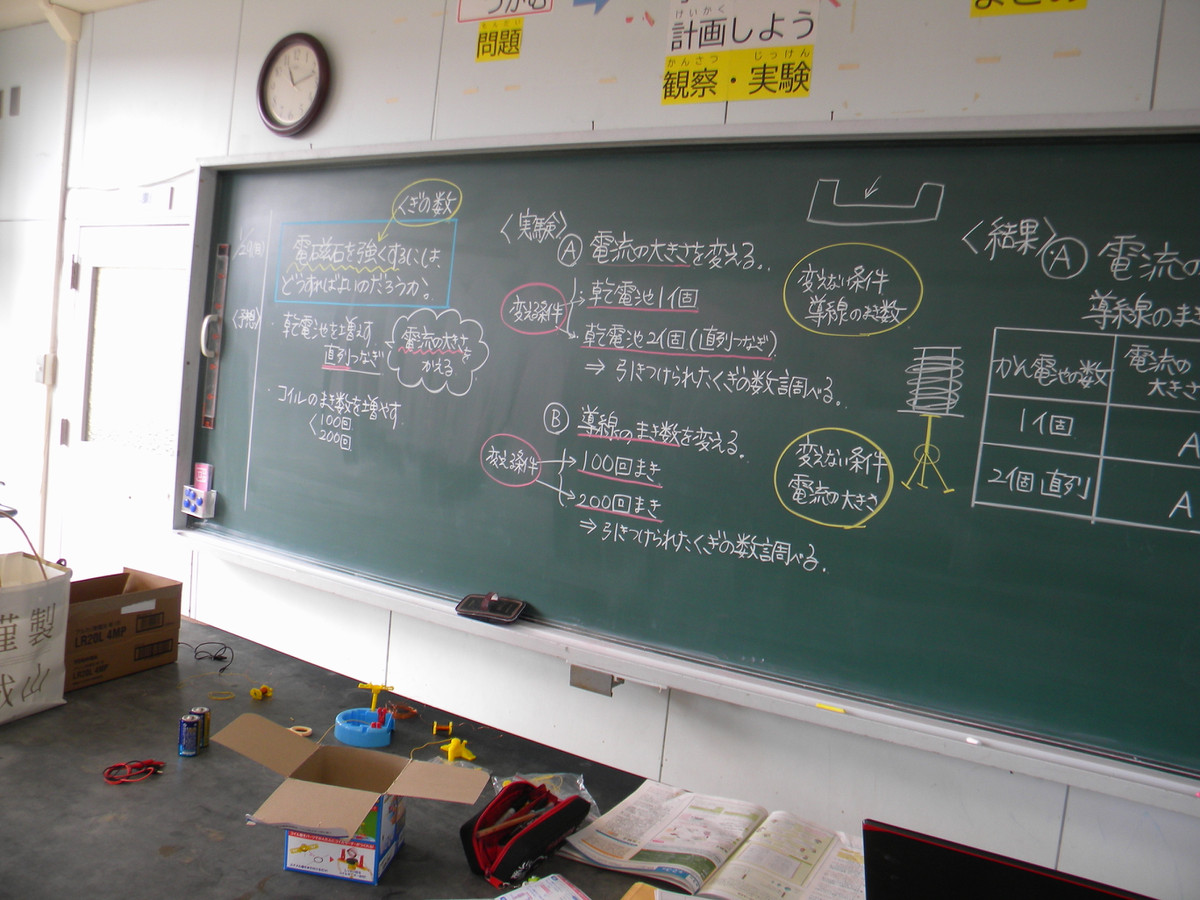 問題
もんだい
けいかく
計画しよう
かんさつ じっけん
観察・実験
くぎの数
電磁石を強くするには、
どうすればよいのだろうか。
〈予想〉
・乾電池を増す
直列つなぎ
電流の大きさ
を
かえる
・コイルのまき数を増やす
100回
200回
〈実験〉
Ⓐ 電流の大きさを変える。
変える条件
乾電池1個
乾電池2個(直列つなぎ)
⇒ 引きつけられたくぎの数調べる。
変えない条件
導線のまき数
Ⓑ 導線のまき数を変える。
変える条件
100回まき
200回まき
⇒ 引きつけられたくぎの数調べる。
変えない条件
電流の大きさ
〈結果〉Ⓐ 電流の
導線のまき
かん電池の数
電流の
大きさ
1個
A
2個直列
A
謹製
LR20L 4MP
TOSHIBA